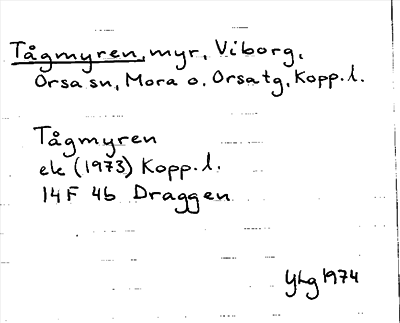 Tågmyren, myr, Viborg,
Orsa sn, Mora o. Orsa tg, Kopp. l.
Tågmyren
ek (1973) Kopp. l.
14F 4b Draggen
YLg 1974